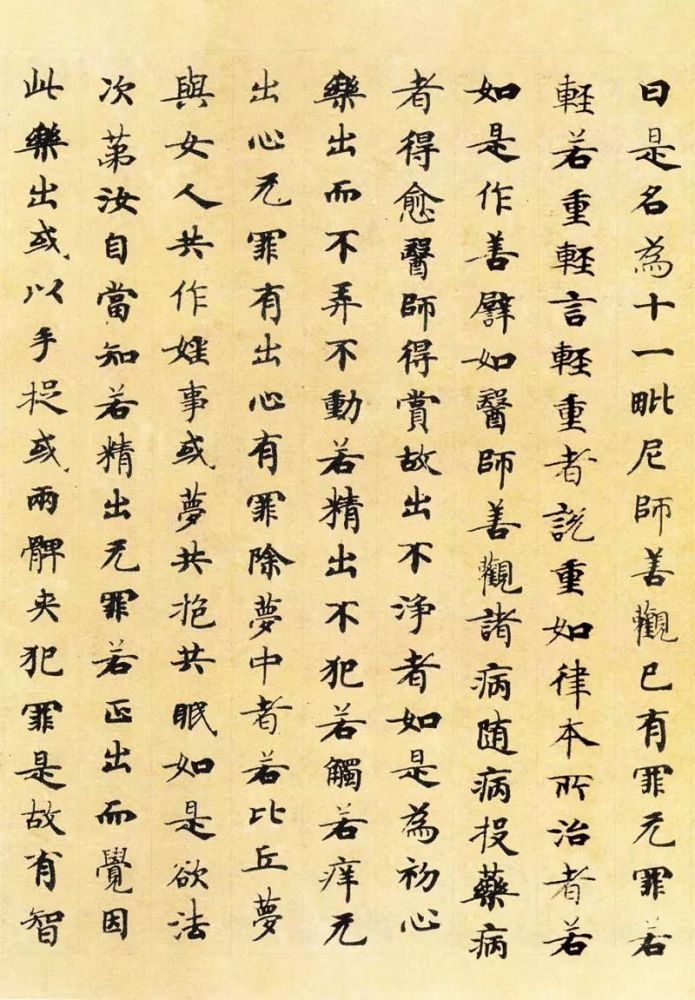 曰是名為十一毗尼師善觀已有罪无罪若
輕若重輕言輕重者說重如律本所治者若
如是作善譬如醫師善觀諸病随病投藥病
者得愈醫師得賞故出不淨者如是為初心
樂出而不弄不動若精出不犯若觸若痒无
出心无罪有出心有罪除夢中者若比丘夢
與女人共作婬事或夢共抱共眠如是欲法
次苐汝自當知若精出无罪若正出而覺因
此樂出或以手捉或兩髀夾犯罪是故有智